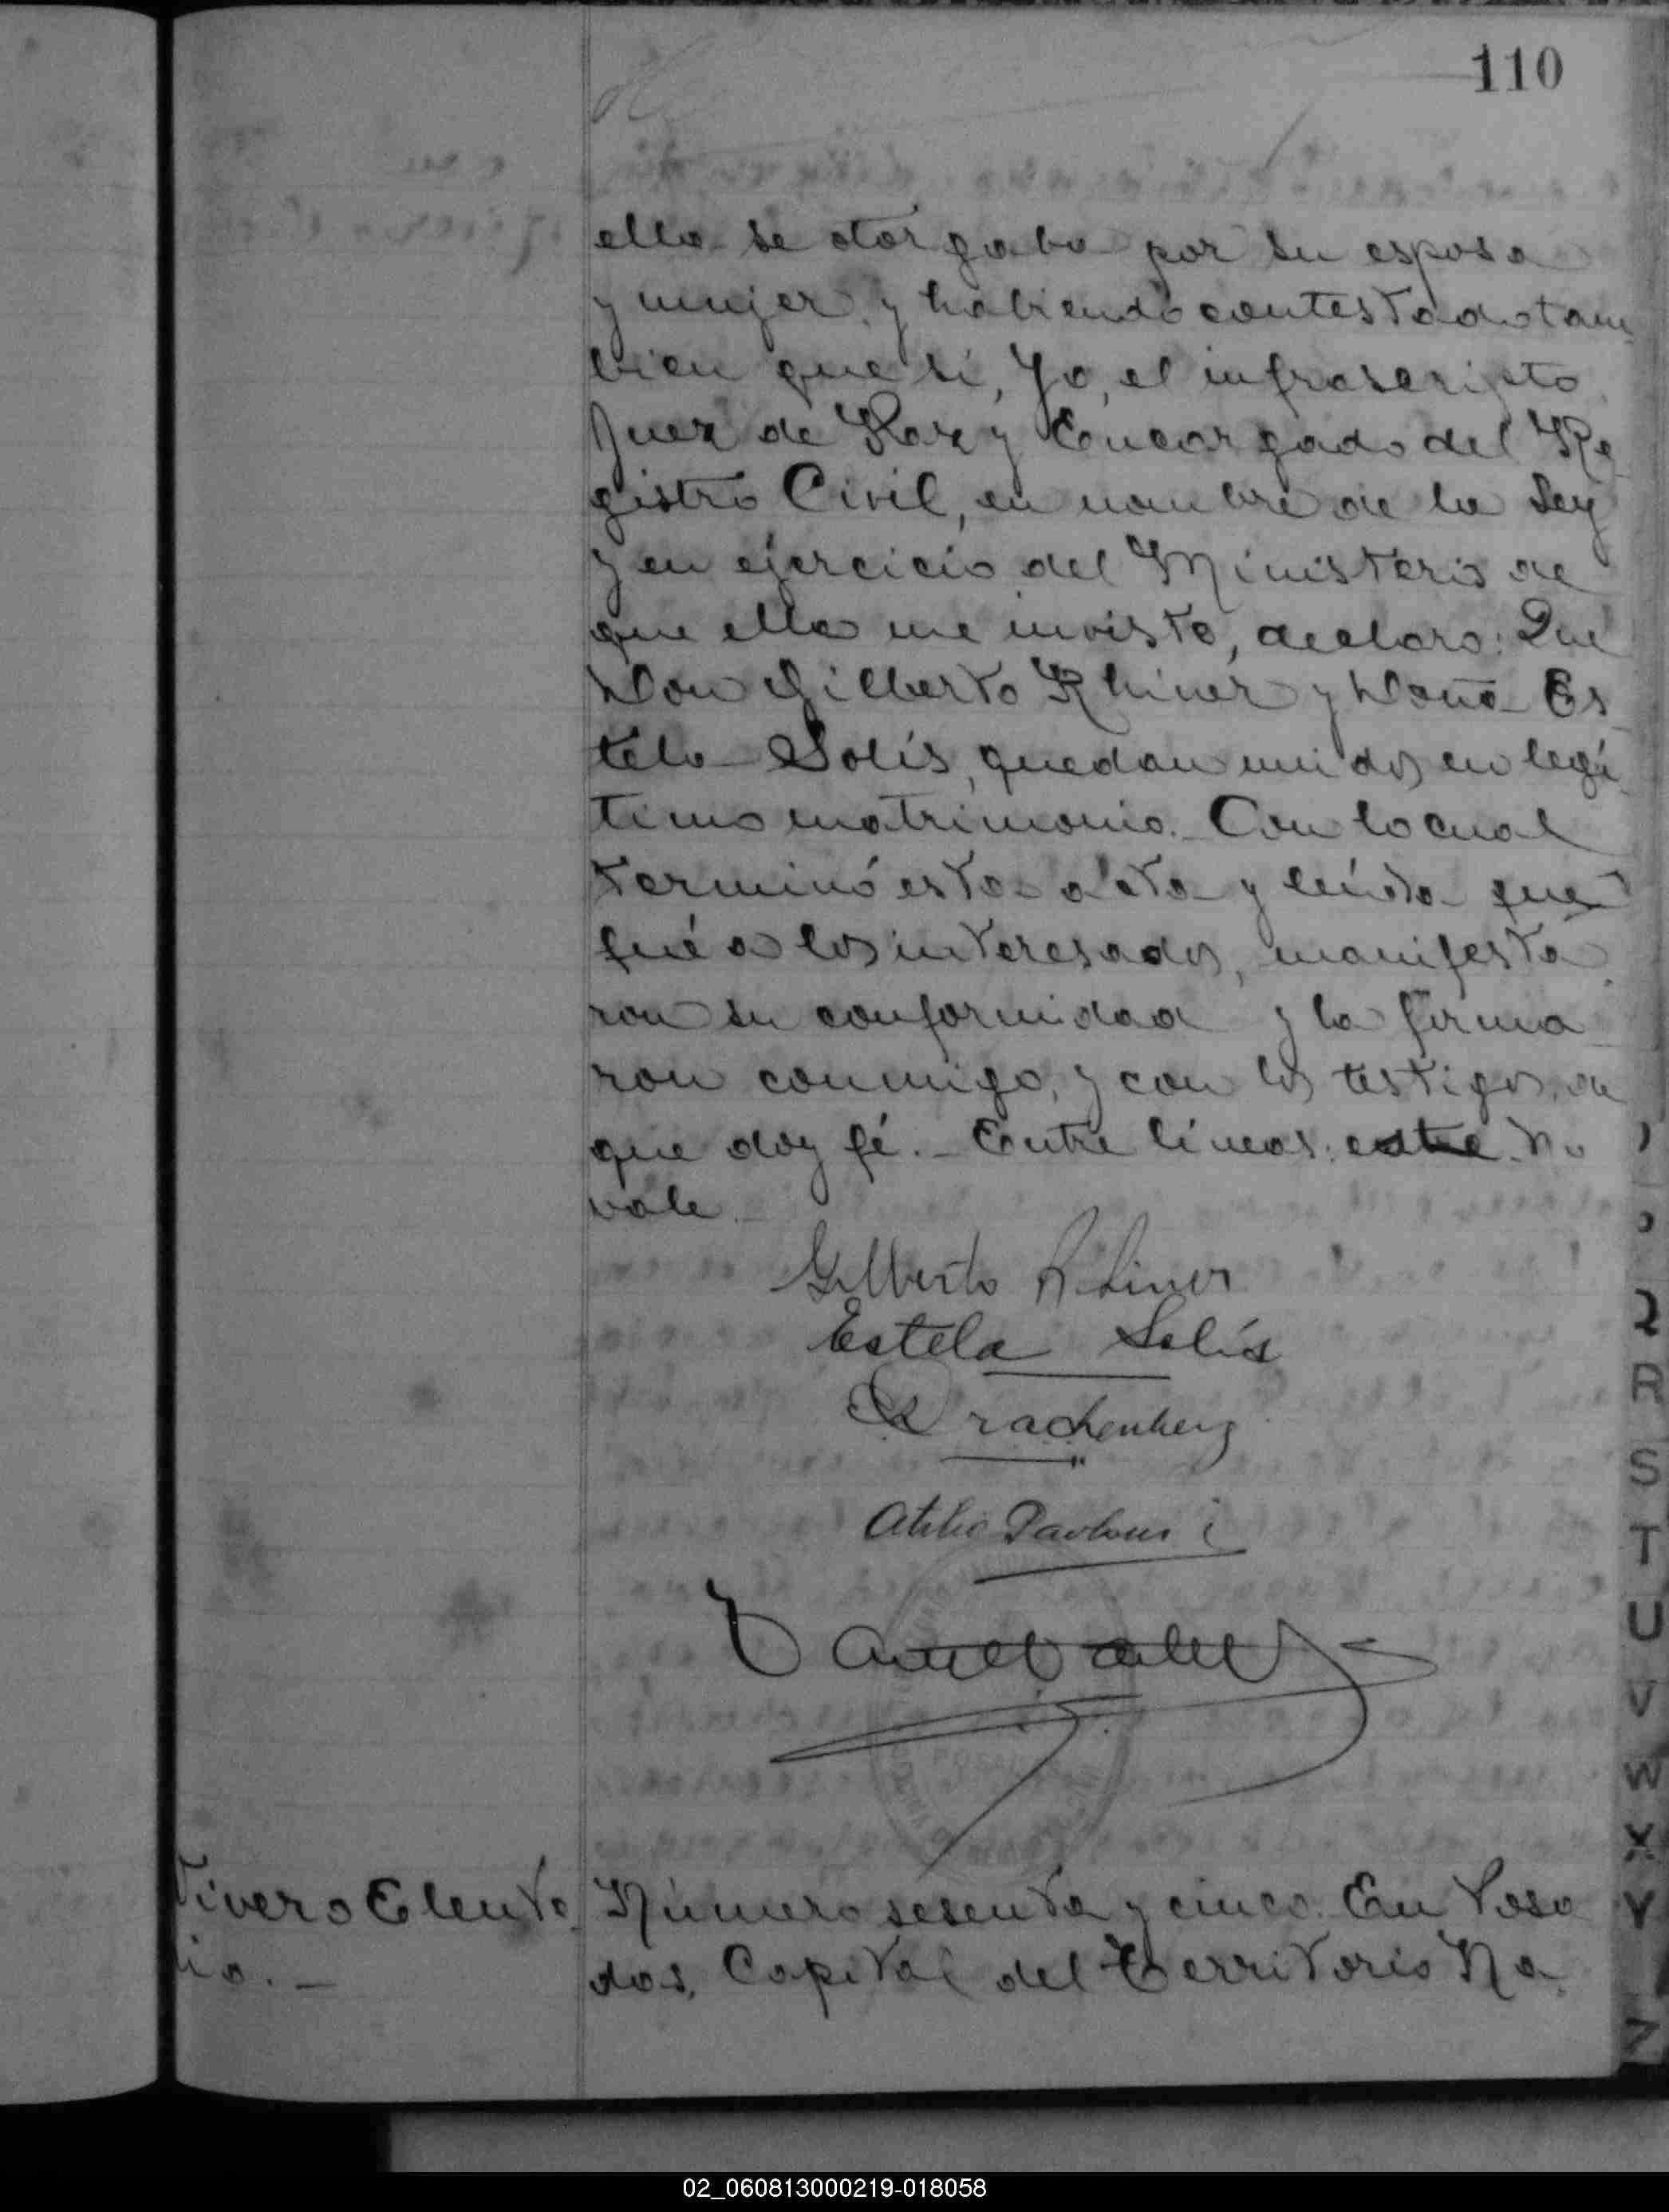 110
ella se otorgaba por su esposa
y mujer, y habiendo contestado tam
bien que sí, Yo, el infrascripto
Juez de Paz y Encargado del Re
gistro Civil, en nombre de la Ley
y en ejercicio del Ministerio de
que ella me inviste, declaro: Que
Don Gilberto Rhiner y Doña Es
tela Solís, quedan unidos en legí
timo matrimonio. Con lo cual
terminó esta acta y leída que
fué a los interesados, manifesta
ron su conformidad y la firma
ron conmigo, y con los testigos, de
que doy fé. - Entre líneas: este No
vale.
Gilberto Rhiner
Estela Solís
Drachenberg
Atilio
Rivero Eleute
rio. -
Número sesenta y cinco. En Posa
das, Capital del Territorio Na
Q
R
S
T
U
V
W
X
Y
Z
02_060813000219-018058